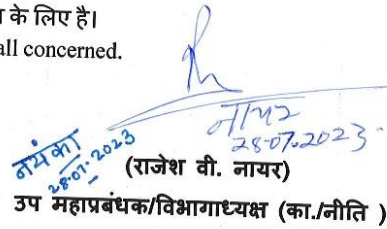 के लिए है।
all concerned.
नायर
28-07-2023
नयंका
28.07.2023
(राजेश वी. नायर)
उप महाप्रबंधक/विभागाध्यक्ष (का./नीति )